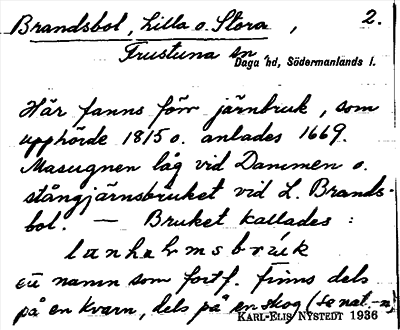 Brandsbol, Lilla o. Stora, 2.
Frustuna sn,
Daga hd, Södermanlands l.
Här fanns förr järnbruk, som
upphörde 1815 o. anlades 1669.
Masugnen låg vid Dammen o.
stångjärnsbruket vid L. Brands-
bol. — Bruket kallades :
lanhalmsbrúk
ett namn som fortf. finns dels
på en kvarn, dels på en skog (se nat.-n)
KARL-ELIS NYSTEDT 1936